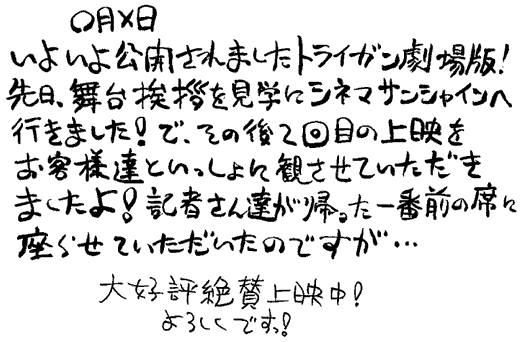 〇月×日
いよいよ公開されましたトライガン劇場版!
先日、舞台挨拶を見学にシネマサンシャインへ
行きました!で、その後2回目の上映を
お客様達といっしょに観させていただき
ましたよ!記者さん達が帰った一番前の席に
座らせていただいたのですが…
大好評絶賛上映中!
よろしくですっ!